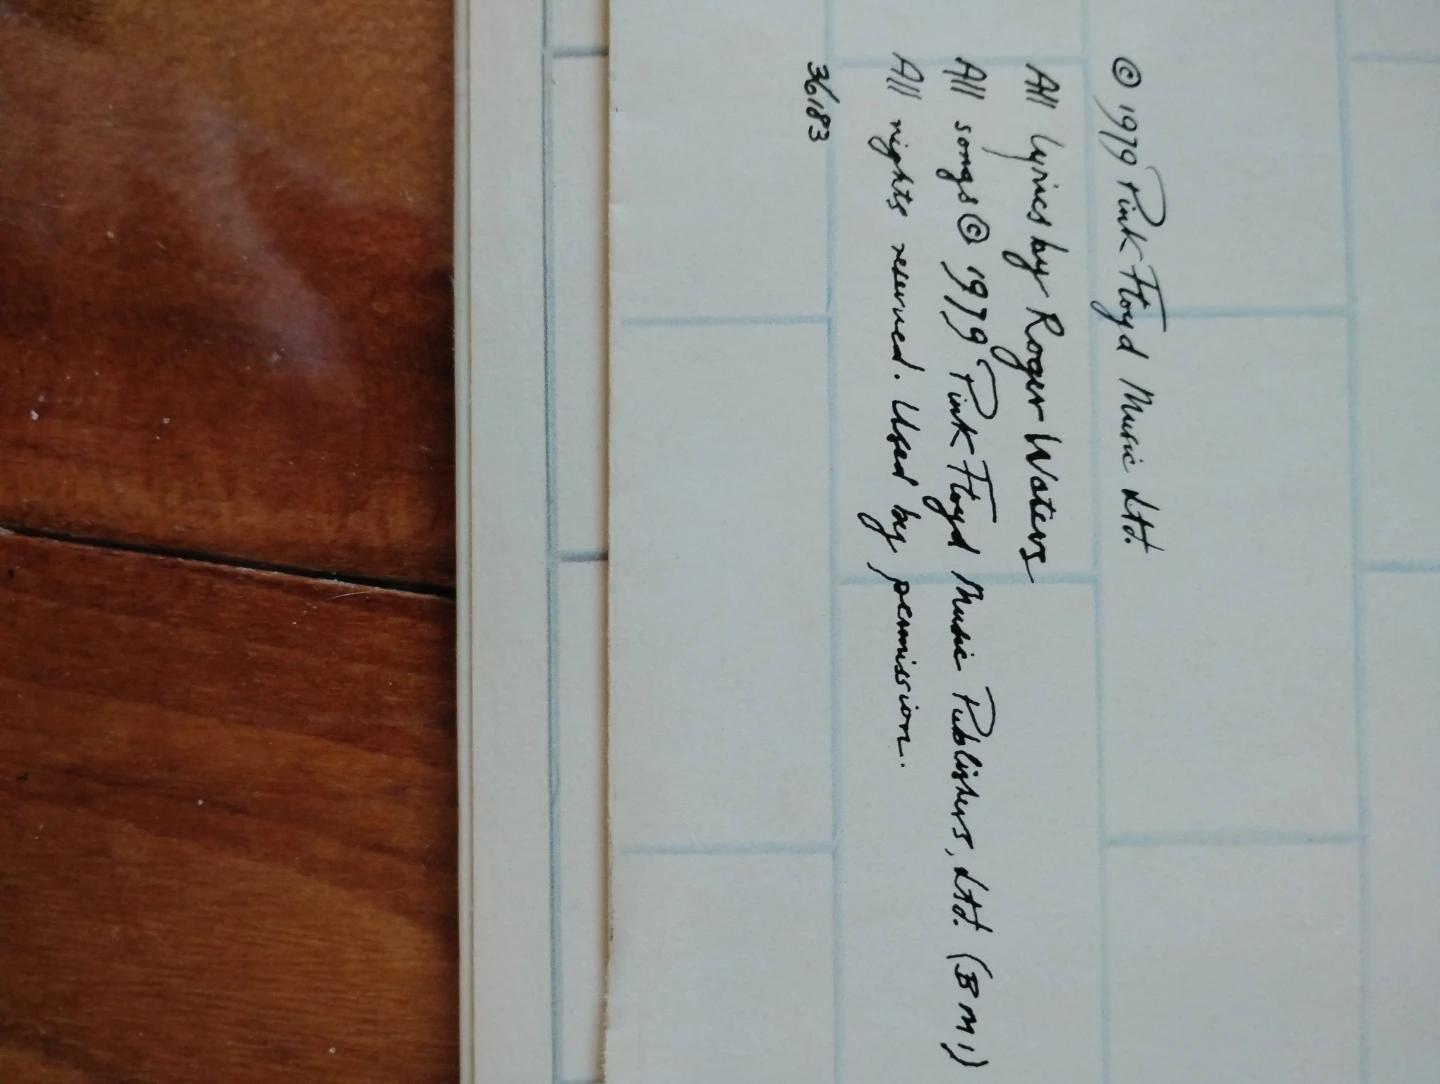 © 1979 Pink Floyd Music Ltd.
All lyrics by Roger Waters
All songs © 1979 Pink Floyd Music Publishers, Ltd. (BMI)
All rights reserved. Used by permission.
36183